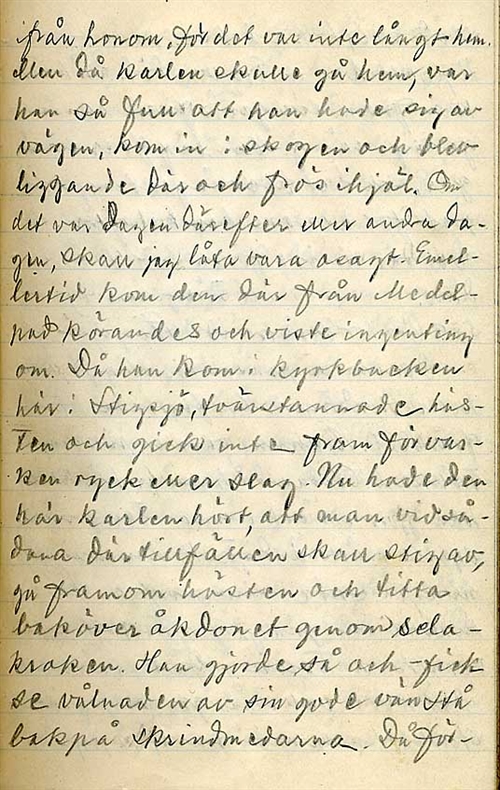 ifrån honom, för det var inte långt hem.
Men då karlen skulle gå hem, var
han så full att han hade sig av
vägen, kom in i skogen och blev
liggande där och frös ihjäl. Om
det var dagen därefter eller andra da-
gen, skall jag låta vara osagt. Emel-
lertid kom den där från Medel-
pad körandes och visste ingenting
om. Då han kom i kyrkbacken
här i Stigsjö, tvärstannade häs-
ten och gick inte fram för var-
ken ryck eller slag. Nu hade den
här karlen hört, att man vid så-
dana där tillfällen skall stig av,
gå framom hästen och titta
baköver åkdonet genom sela-
kroken. Han gjorde så och fick
se vålnaden av sin gode vän stå
bakpå skrindmedarna. Då för-